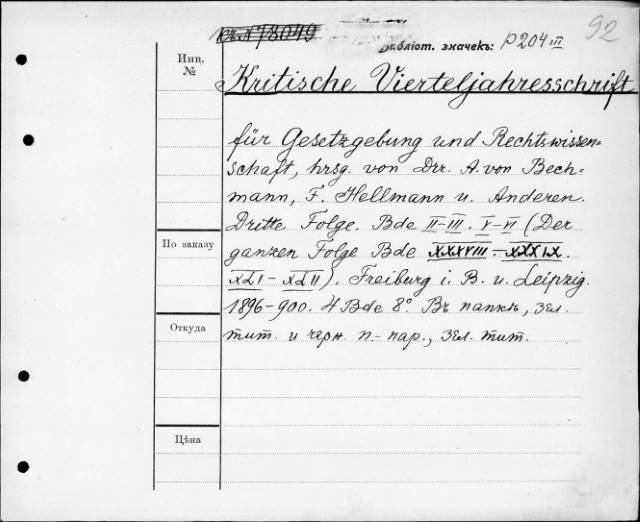 къ № 78049
92
Библіот. значекъ: P204 III
Инв. №
Kritische Vierteljahresschrift
für Gesetzgebung und Rechtswissen=
schaft, hrsg. von Drr. A. von Bech=
mann, F. Hellmann u. Anderen.
Dritte Folge. Bde II-III. V-VI (Der
По заказу
ganzen Folge Bde XXXVIII.-XXXIX.
XLI-XLII). Freiburg i. B. u. Leipzig.
1896-900. 4 Bde 8°. Въ папкѣ, зел.
Откуда
тит. и черн. п.-пар., зел. тит.
Цѣна